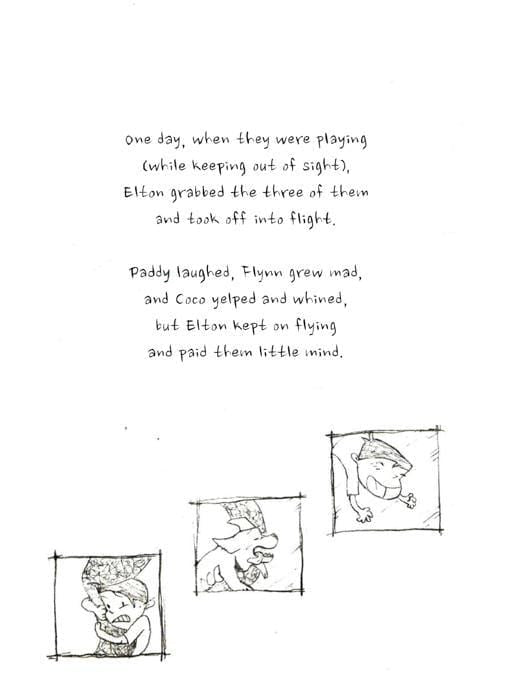 One day, when they were playing
(while keeping out of sight),
Elton grabbed the three of them
and took off into flight.
Paddy laughed, Flynn grew mad,
and Coco yelped and whined,
but Elton kept on flying
and paid them little mind.